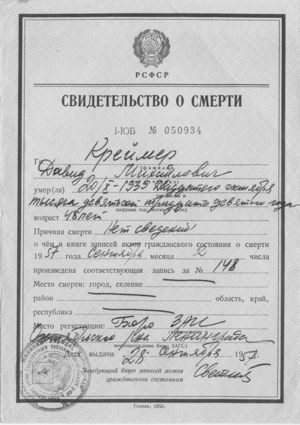 РСФСР
СВИДЕТЕЛЬСТВО О СМЕРТИ
I-ЮБ № 050934
Креймер
Гр.
Давид Михайлович
умер(ла) 20/X-1939 двадцатого октября
тысяча девятьсот тридцать девятого года
возраст 48 лет
Причина смерти Нет сведений
о чём в книге записей актов гражданского состояния о смерти
1957 года сентября месяца 2 числа
произведена соответствующая запись за № 148
Место смерти: город, селение
район область, край,
республика
Место регистрации: Бюро ЗАГС
Октябрьского р-на Ленинграда
Дата выдачи 28 сентября 1957
Заведующий бюро записей актов
гражданского состояния
Гознак. 1950.